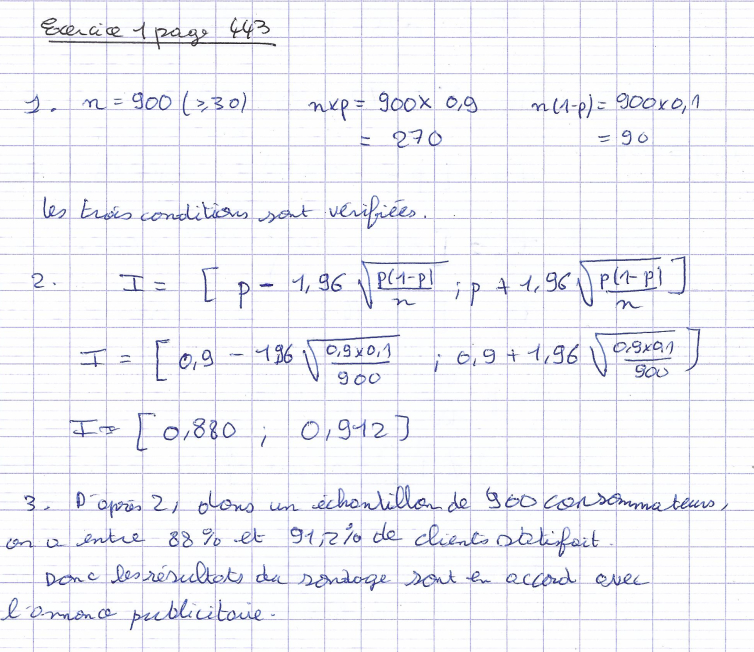 Exercice 1 page 443
1. n = 900 (≥30) n×p = 900× 0,9 n(1-p) = 900×0,1
= 270 = 90
les trois conditions sont vérifiées.
2. I = [ p - 1,96 √(p(1-p)/n) ; p + 1,96 √(p(1-p)/n) ]
I = [ 0,9 - 196 √(0,9×0,1/900) ; 0,9 + 1,96 √(0,9×0,1/900) ]
I = [ 0,880 ; 0,912 ]
3. D'après 2, dans un échantillon de 900 consommateurs,
on a entre 88% et 91,2% de clients satisfait.
Donc les résultats du sondage sont en accord avec
l'annonce publicitaire.